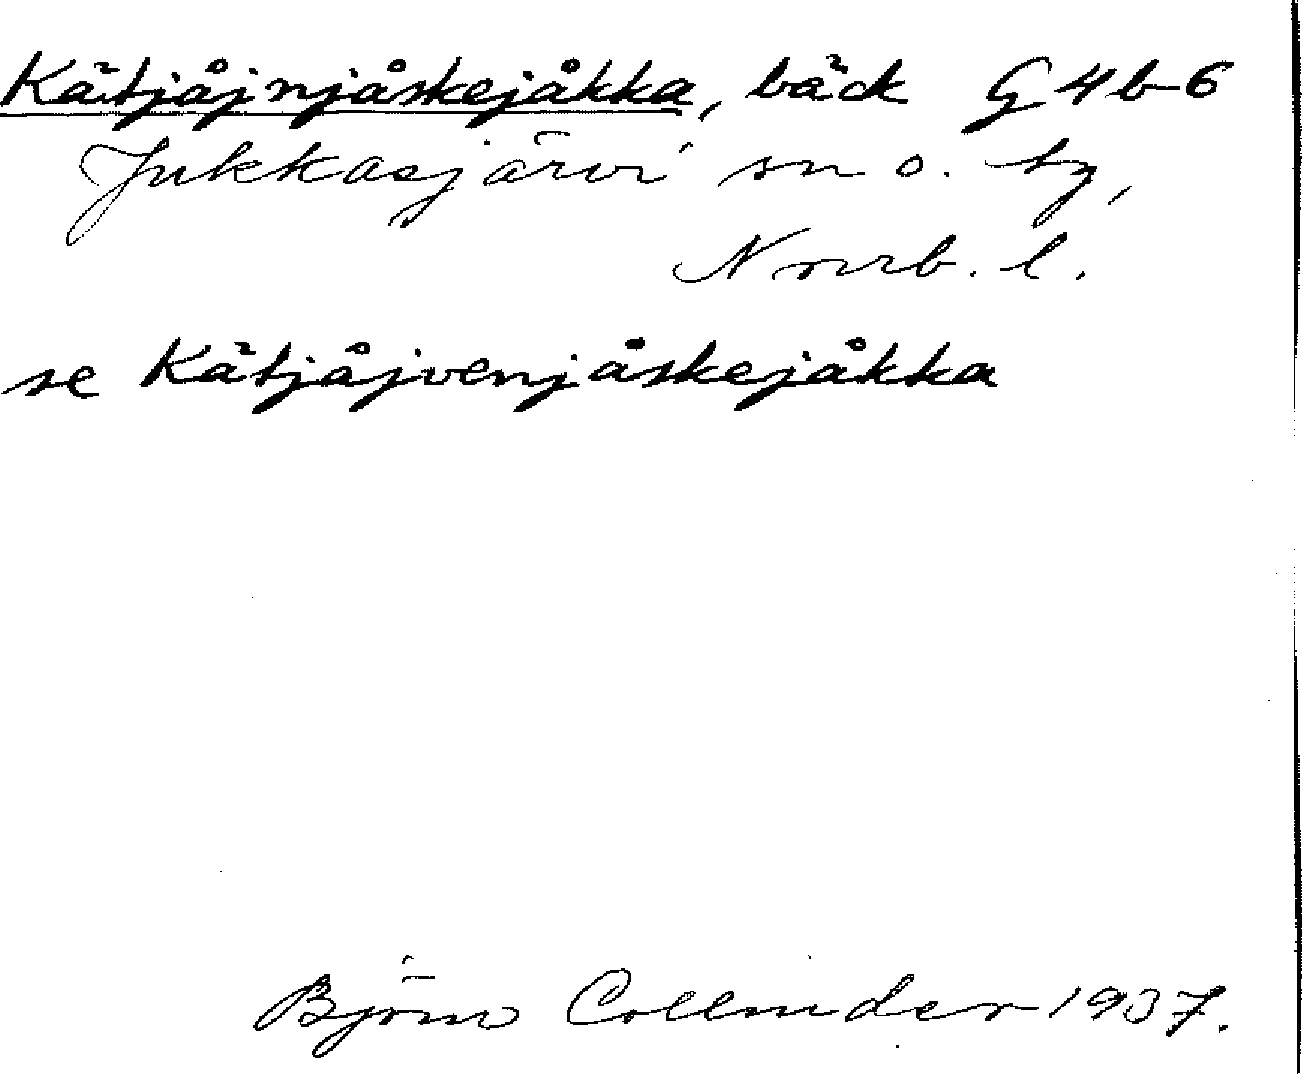 Kätjåjnjåskejåkka, bäck G4b-6
Jukkasjärvi sn o. tg,
Norrb. l.
se Kätjåjvenjåskejåkka
Björn Collinder 1937.